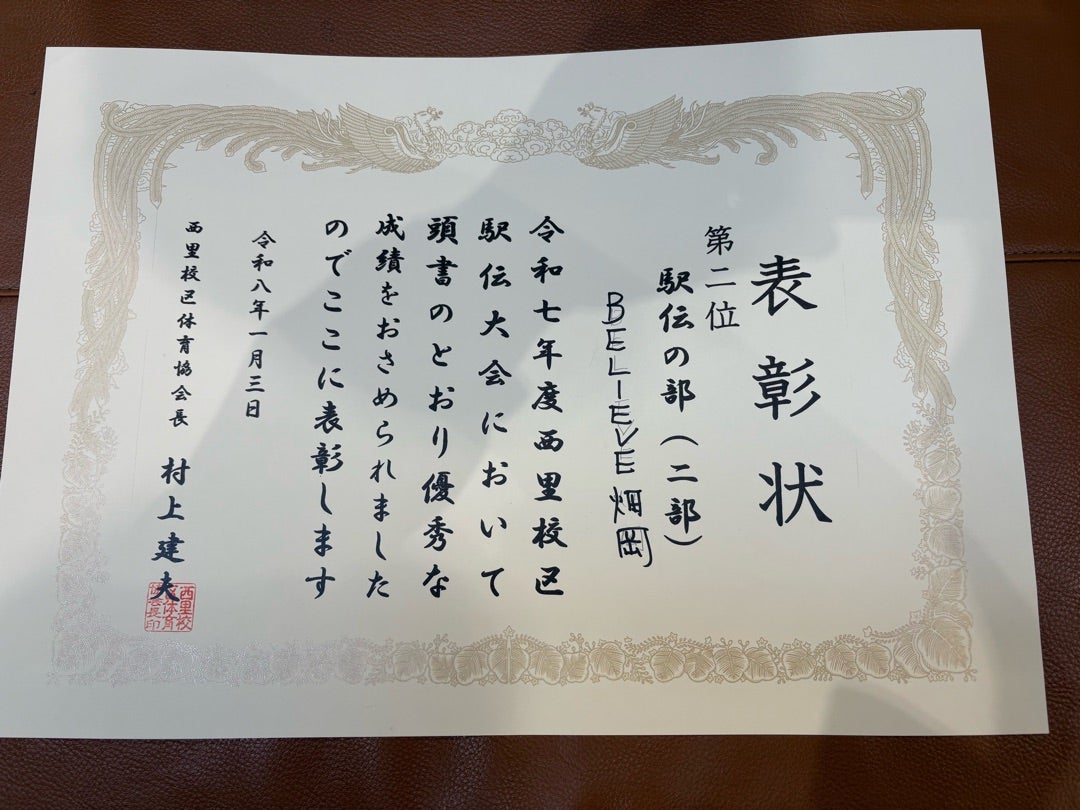 表彰状
第二位
駅伝の部(二部)
BELIEVE 畑岡
令和七年度西里校区
駅伝大会において
頭書のとおり優秀な
成績をおさめられました
のでここに表彰します
令和八年一月三日
西里校区体育協会長
村上建夫
西里校
区体育
協会長印